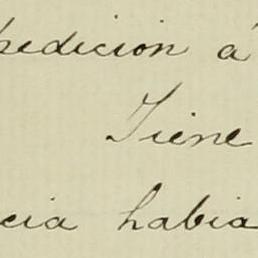 pedicion á
Tiene
cia habia